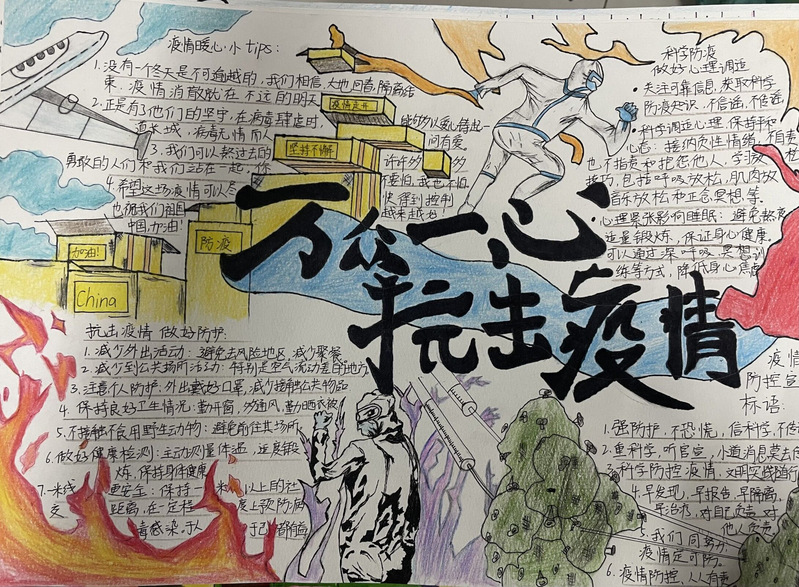 疫情暖心小tips:
1.没有一个冬天是不可逾越的,我们相信大地回春,隔离结
束,疫情消散就在不远的明天
2.正是有了他们的坚守,在病毒肆虐时,
能够以爱心铸起一
道长城,病毒无情而人
间有爱.
3.我们可以熬过去的
许许多多
勇敢的人们和我们站在一起,你
要怕,我也不怕
4.希望这场疫情可以尽
快得到控制
也祝我们祖国
越来越好!
中国,加油!
疫情走开
坚持不懈
防疫
加油!
China
科学防疫
做好心理调适
·关注可靠信息,获取科学
防疫知识,不信谣,不传谣
·科学调适心理,保持平和
心态:接纳负性情绪,不自责
也不指责和抱怨他人,学习放松
技巧,包括呼吸放松,肌肉放
音乐放松和正念冥想等.
·心理紧张影响睡眠:避免熬夜
适量锻炼,保证身心健康,
可以通过深呼吸、冥想训
练等方式,降低身心焦虑
万众一心
抗击疫情
抗击疫情 做好防护:
1.减少外出活动:避免去风险地区,减少聚餐
2.减少到公共场所活动:特别是空气流动差的地方
3.注意个人防护:外出戴好口罩,减少接触公共物品
4.保持良好卫生情况:勤开窗,多通风,勤晒衣被
5.不接触不食用野生动物:避免前往售场所
6.做好健康检测:主动测量体温,适度锻
炼,保持身体健康
7.一米线
更安全:保持一米
以上的社
交
距离,在一定程
度上预防病
毒感染,于人
于己都有益
疫情
防控宣
标语:
1.强防护,不恐慌,信科学,不传
2.重科学,听官宣,小道消息莫去信
3.科学防控疫情,文明实践随行
4.早发现,早报告,早隔离,
早治疗,对自己负责,对
他人负责.
5.我们同努力
疫情定可防.
6.疫情防控,人人有责